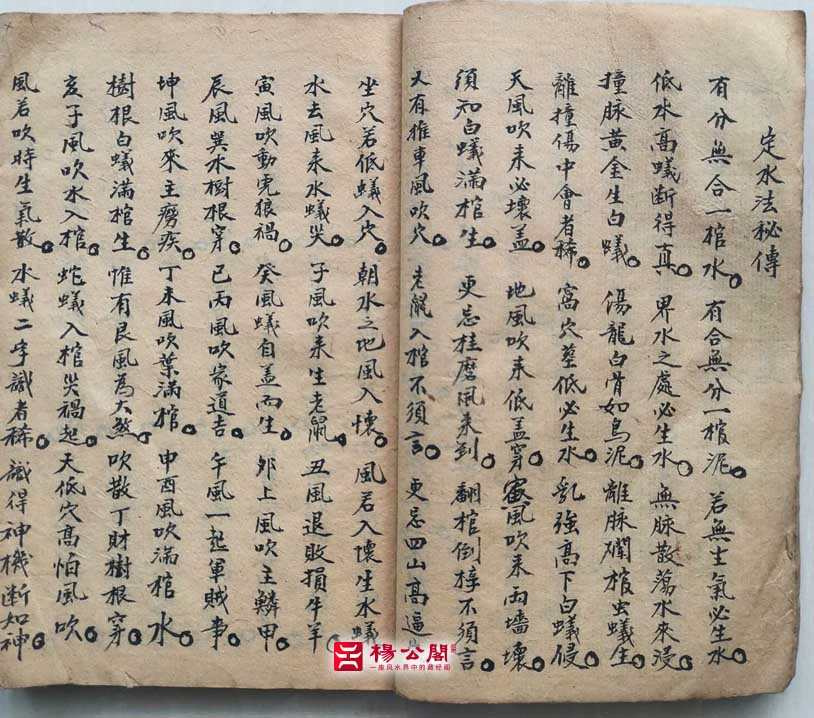 定水法秘傳
有分無合一棺水。有合無分一棺泥。若無生氣必生水。
低水高蟻斷得真。界水之處必生水。無脉散蕩水來浸。
撞脉黃金生白蟻。傷龍白骨如烏泥。離脉閗棺虫蟻生。
離撞傷中會者稀。窩穴塟低必生水。乳強高下白蟻侵。
天風吹来必壊蓋。地風吹来低蓋穿。風吹来兩墻壞。
須知白蟻滿棺生。更忌柱磨風来到。翻棺倒槨不須言。
又有推車風吹穴。老鼠入棺不須言。更忌四山高逼
坐穴若低蟻入穴。朝水之地風入懷。風若入懷生水蟻
水去風来水蟻災。子風吹来生老鼠。丑風退敗損牛羊。
寅風吹動虎狼禍。癸風蟻自盖而生。卯上風吹主鱗甲。
辰風巽水樹根穿。巳丙風吹家道吉。午風一起軍賊事。
坤風吹來主癆疾。丁未風吹葉滿棺。申酉風吹滿棺水。
樹根白蟻滿棺生。惟有艮風為大煞。吹散丁財樹根穿。
亥子風吹水入棺。蛇蟻入棺災禍起。天低穴高怕風吹。
風若吹時生氣散。水蟻二字識者稀。識得神機斷如神。
楊公閣
一座风水界中的藏经阁